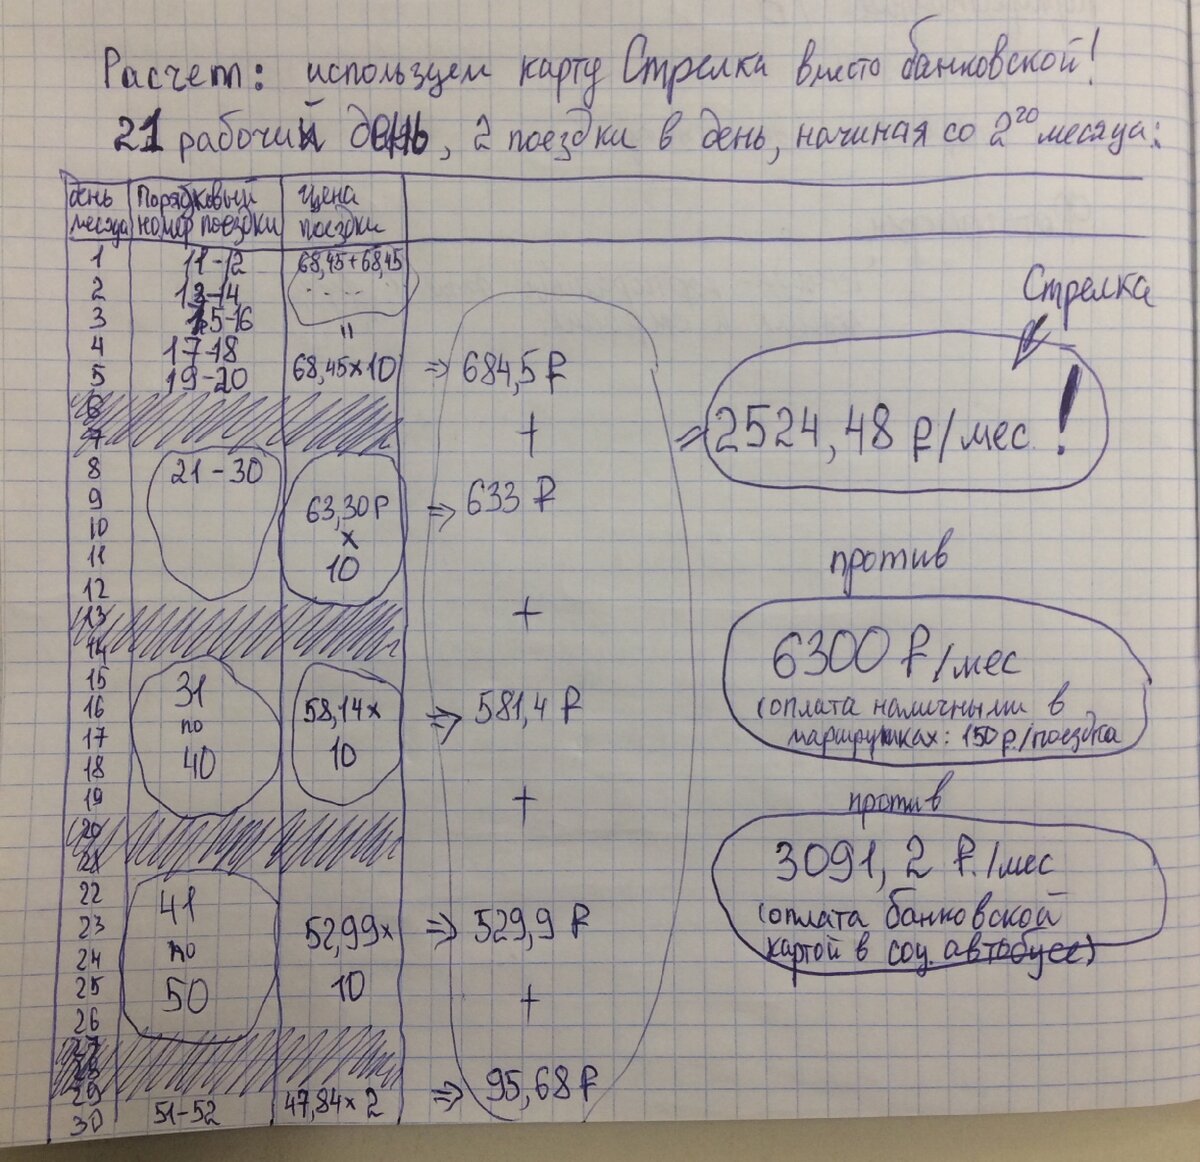 Расчет: используем карту Стрелка вместо банковской!
21 рабочий день, 2 поездки в день, начиная со 2го месяца:
день месяца
Порядковый номер поездки
Цена поездки
1 11-12 68,45+68,45
2 13-14 .....
3 15-16 =
4 17-18
5 19-20 68,45×10 ⇒ 684,5 ₽
6
7 +
8 21-30
9 63,30 Р ⇒ 633 ₽
10 ×
11 10
12
13 +
14
15 31
16 по 58,14× ⇒ 581,4 ₽
17 40 10
18
19 +
20
21
22 41
23 по 52,99× ⇒ 529,9 ₽
24 50 10
25
26 +
27
28
29 47,84×2 ⇒ 95,68 ₽
30 51-52
Стрелка
⇒ 2524,48 ₽/мес!
против
6300 ₽/мес
(оплата наличными в
маршрутках: 150 р./поездка
против
3091,2 ₽./мес
(оплата банковской
картой в соц. автобусе)